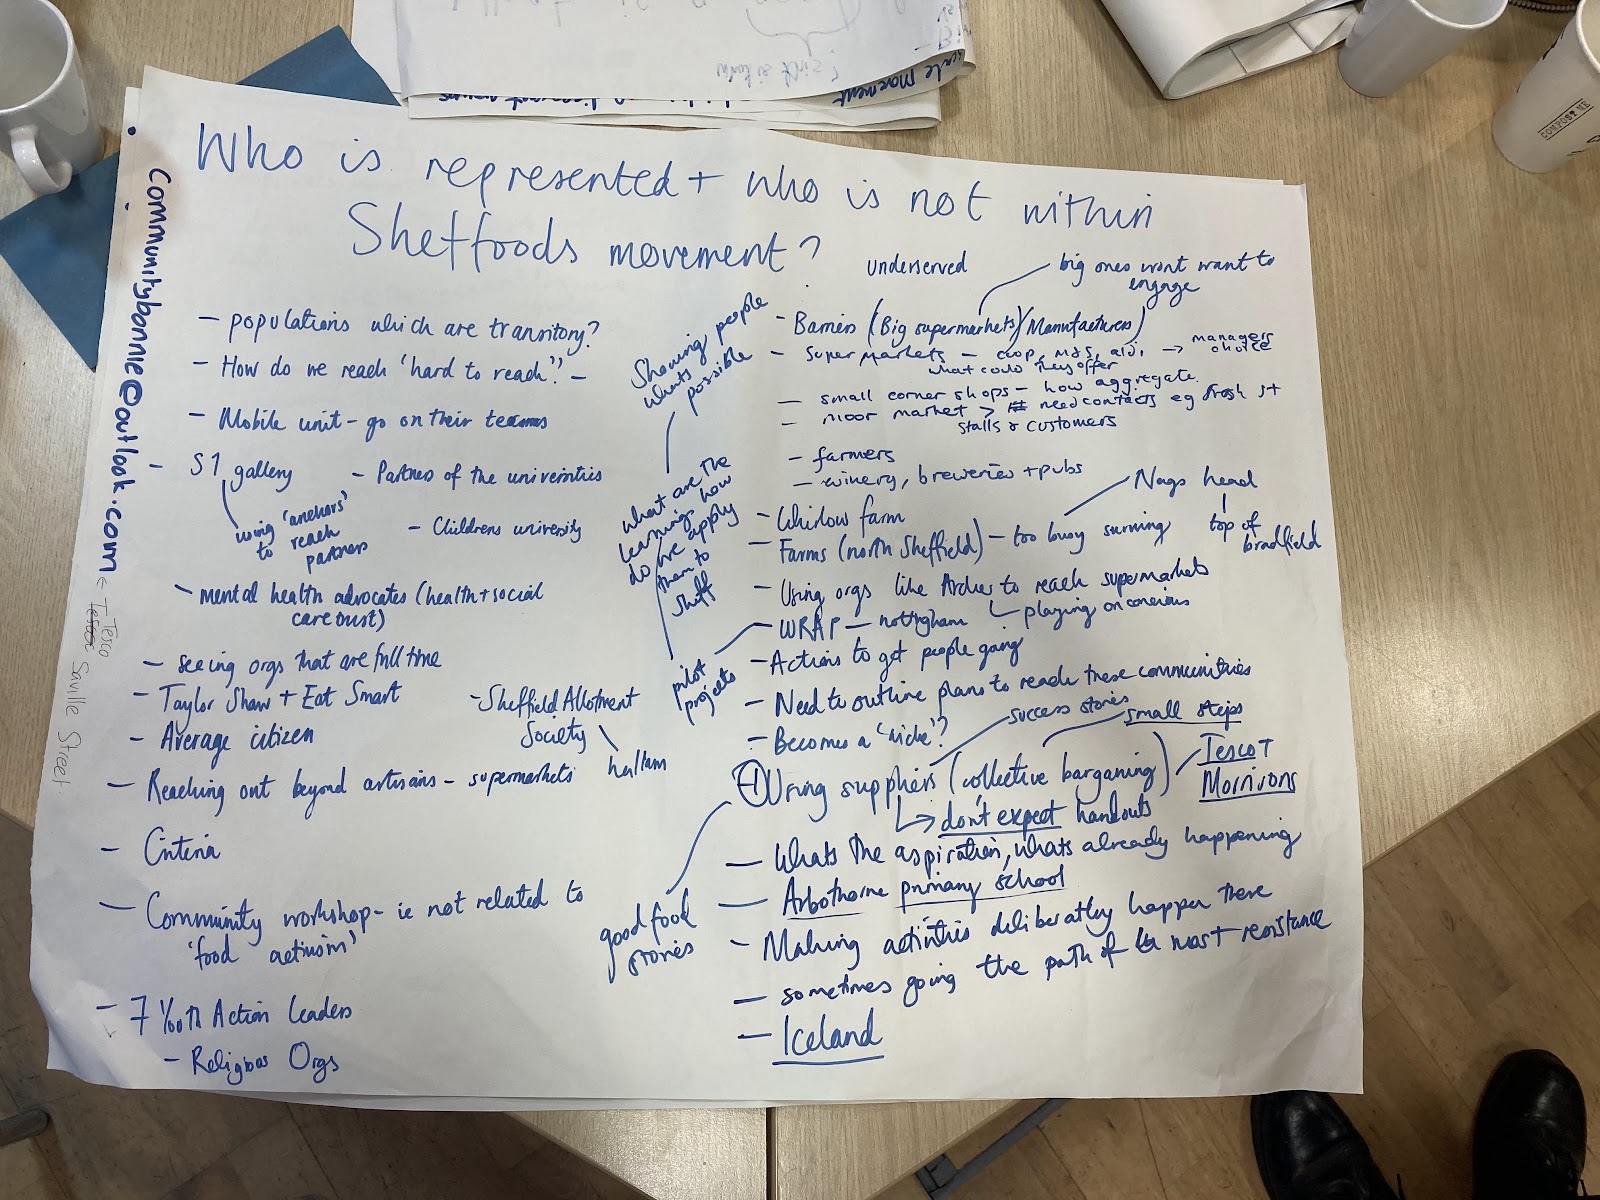 Who is represented + who is not within
Sheffoods movement?
communitybonnie@outlook.com
< Tesco
Tesco Saville Street
- populations which are transitory?
- How do we reach 'hard to reach'? -
- Mobile unit - go on their terms
- S1 gallery
using 'anchors'
to reach
partners
- Partners of the universities
- Childrens university
- mental health advocates (health + social
care trust)
- seeing orgs that are full time
- Taylor Shaw + Eat Smart
- Average citizen
- Sheffield Allotment
Society
hallam
- Reaching out beyond artisans - supermarkets
- Criteria
- Community workshop - ie not related to
'food activism'
- 7 Youth Action Leaders
- Religious Orgs
Showing people
whats
possible
what are the
learnings how
do we apply
them to
Sheff
pilot
projects
good food
stories
underserved
big ones wont want to
engage
- Barriers (Big supermarkets)(Manufacturers)
- Supermarkets - coop, m&s, aldi, → managers
choice
what could they offer
- small corner shops - how aggregate
- moor market > need contacts eg fresh st
stalls & customers
- farmers
- winery, breweries + pubs
Nags head
top of
bradfield
- Whirlow farm
- Farms (north Sheffield) - too busy surviving
- Using orgs like Archer to reach supermarkets
playing on concious
- WRAP - nottingham
- Actions to get people going
- Need to outline plans to reach these communities
- Becomes a 'niche'?
success stories
small steps
Using suppliers (collective bargaining)
Tesco +
Morrisons
→ don't expect handouts
- Whats the aspiration, whats already happening
- Arbothorne primary school
- Making activities deliberatley happen there
- sometimes going the path of most resistance
- Iceland
COMPOST ME